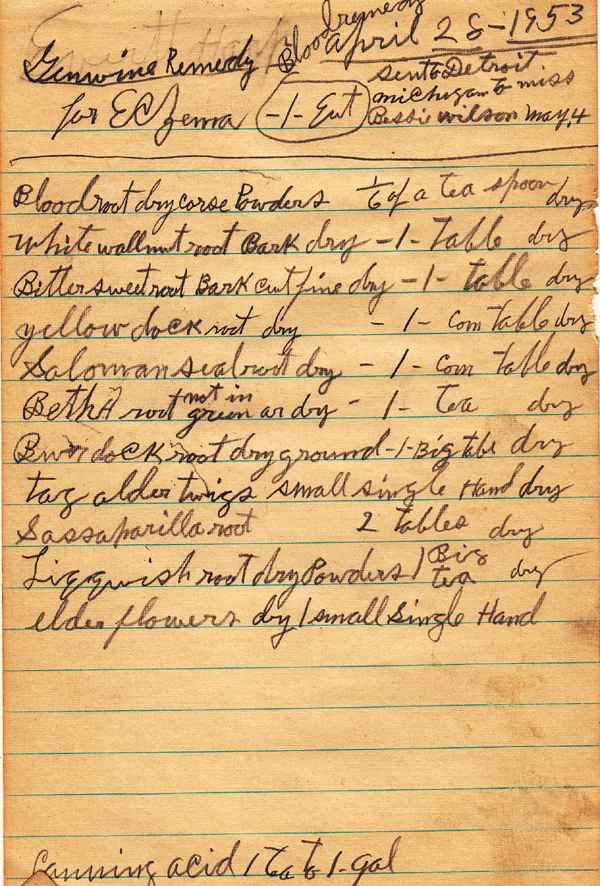 Blood remedy
april 28-1953
Genuine Remedy
for ECZema -1- Ext
sent to Detroit
michigan to miss
Bessie wilson May, 4
Bloodroot dry corse Powders 1/6 of a tea spoon dry
White wallnut root Bark dry -1- Table dry
Bittersweet root Bark cut fine dry -1- table dry
yellow dock root dry -1- com table dry
Saloman seal root dry -1- com table dry
BethA root not in green ar dry -1- Tea dry
Burdock root dry ground -1- Big table dry
tag alder twigs small single Hand dry
Sassaparilla root 2 tables dry
Liqqwish root dry Powders 1 Big tea dry
elder flowers dry 1 small Single Hand
Canning acid 1 ta to 1-gal